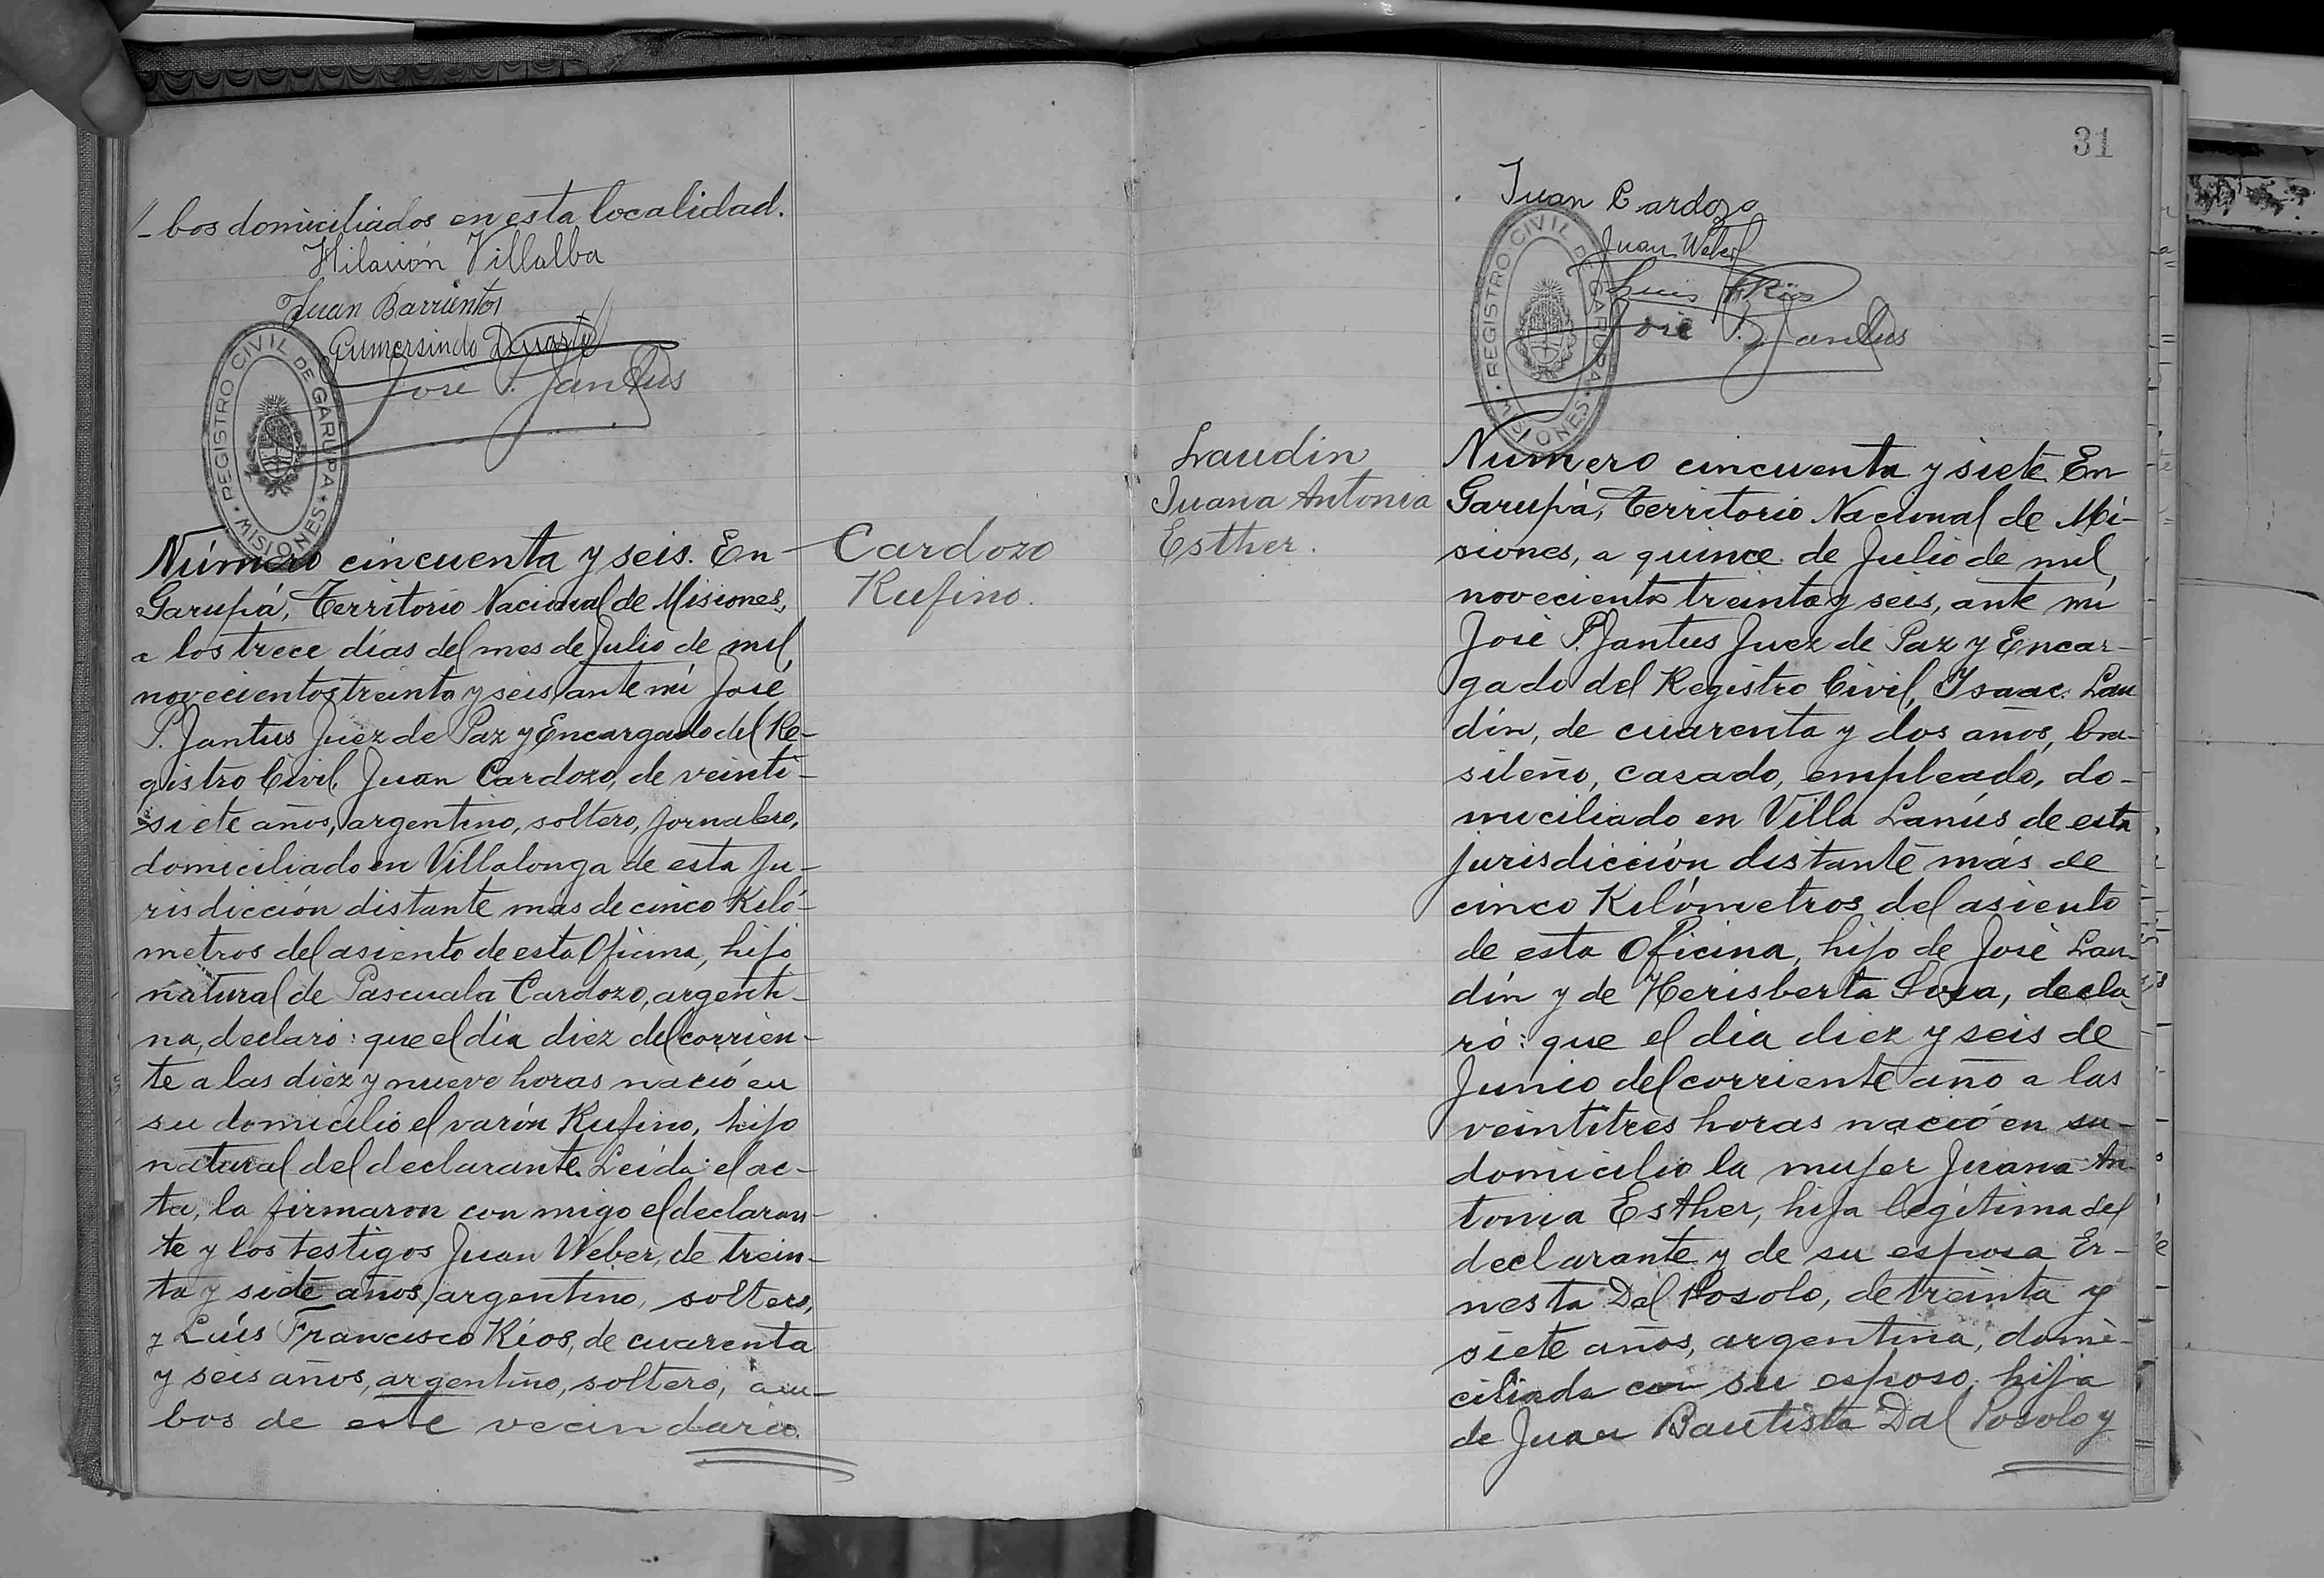 //- bos domiciliados en esta localidad.
Hilarión Villalba
Juan Barrientos
Gumersindo Duarte
José P. Jantus
REGISTRO CIVIL DE GARUPA
MISIONES
Número cincuenta y seis. En
Garupá, Territorio Nacional de Misiones,
a los trece días del mes de Julio de mil
novecientos treinta y seis, ante mí José
P. Jantus Juez de Paz y Encargado del Re-
gistro Civil, Juan Cardozo, de veinti-
siete años, argentino, soltero, jornalero,
domiciliado en Villalonga de esta ju-
risdicción distante mas de cinco Kiló-
metros del asiento de esta Oficina, hijo
natural de Pascuala Cardozo, argenti-
na, declaró: que el día diez del corrien-
te a las diez y nueve horas nació en
su domicilio el varón Rufino, hijo
natural del declarante. Leída el ac-
ta, la firmaron conmigo el declaran-
te y los testigos Juan Weber, de trein-
ta y siete años, argentino, soltero,
y Luís Francisco Ríos, de cuarenta
y seis años, argentino, soltero, am-
bos de este vecindario.
Cardozo
Rufino.
31
Juan Cardozo
Juan Weber
Luis F. Ríos
José P. Jantus
REGISTRO CIVIL DE GARUPA
MISIONES
Laudin
Juana Antonia
Esther.
Número cincuenta y siete En
Garupá, Territorio Nacional de Mi-
siones, a quince de Julio de mil
novecientos treinta y seis, ante mí
José P. Jantus Juez de Paz y Encar-
gado del Registro Civil, Ysaac Lau
dín, de cuarenta y dos años, bra-
sileño, casado, empleado, do-
miciliado en Villa Lanús de esta
jurisdicción distante más de
cinco Kilómetros del asiento
de esta Oficina, hijo de José Lau-
dín y de Herisberta, decla-
ró: que el día diez y seis de
Junio del corriente año a las
veintitres horas nació en su-
domicilio la mujer Juana An-
tonia Esther, hija legítima del
declarante y de su esposa Er-
nesta Dal Posolo, de treinta y
siete años, argentina, domi-
ciliada con su esposo, hija
de Juan Bautista Dal Posolo y